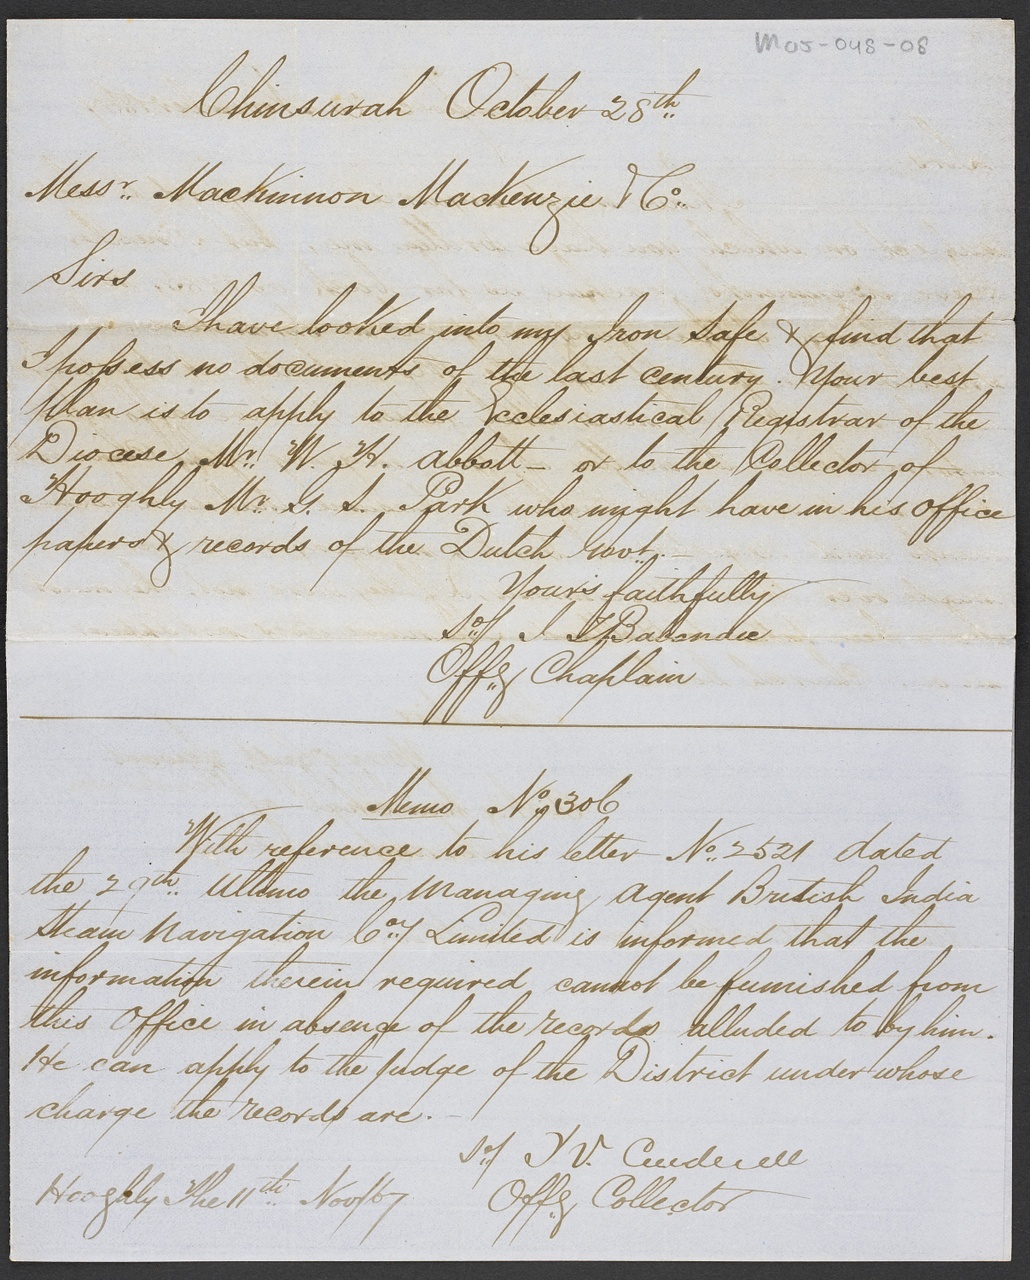 M05-048-08
Chinsurah October 28th
Messr. Mackinnon Mackenzie & Co.
Sirs
I have looked into my Iron Safe & find that
I possess no documents of the last century. Your best
plan is to apply to the Ecclesiastical Registrar of the
Diocese Mr. W. H. Abbott - or to the Collector of
Hooghly Mr. G. S. Park who might have in his office
papers & records of the Dutch Govt.
Yours faithfully
Sd/ J
Offg Chaplain
Memo No. 306
With reference to his letter No. 2521 dated
the 29th Ultimo the Managing Agent British India
Steam Navigation Coy Limited is informed that the
information therein required cannot be furnished from
this Office in absence of the records alluded to by him.
He can apply to the Judge of the District under whose
charge the records are.
Sd/ V.
Hooghly The 11th Nov/67
Offg Collector